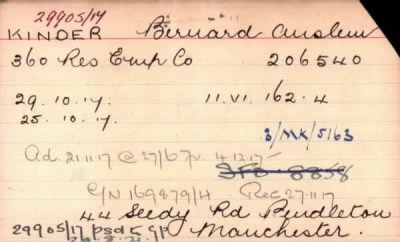 29905/17
KINDER Bernard Anslem
360 Res Emp Co 206540
29.10.17. 11.VI.162.4
25.10.17.
3/MK/5163
Ad. 21.11.17 @ 27/67 v. 4.12.17
SFO 8858
C/N 169879/4 Rec 27.11.17
44 Seedy Rd Pendleton
29905/17 psd Manchester.